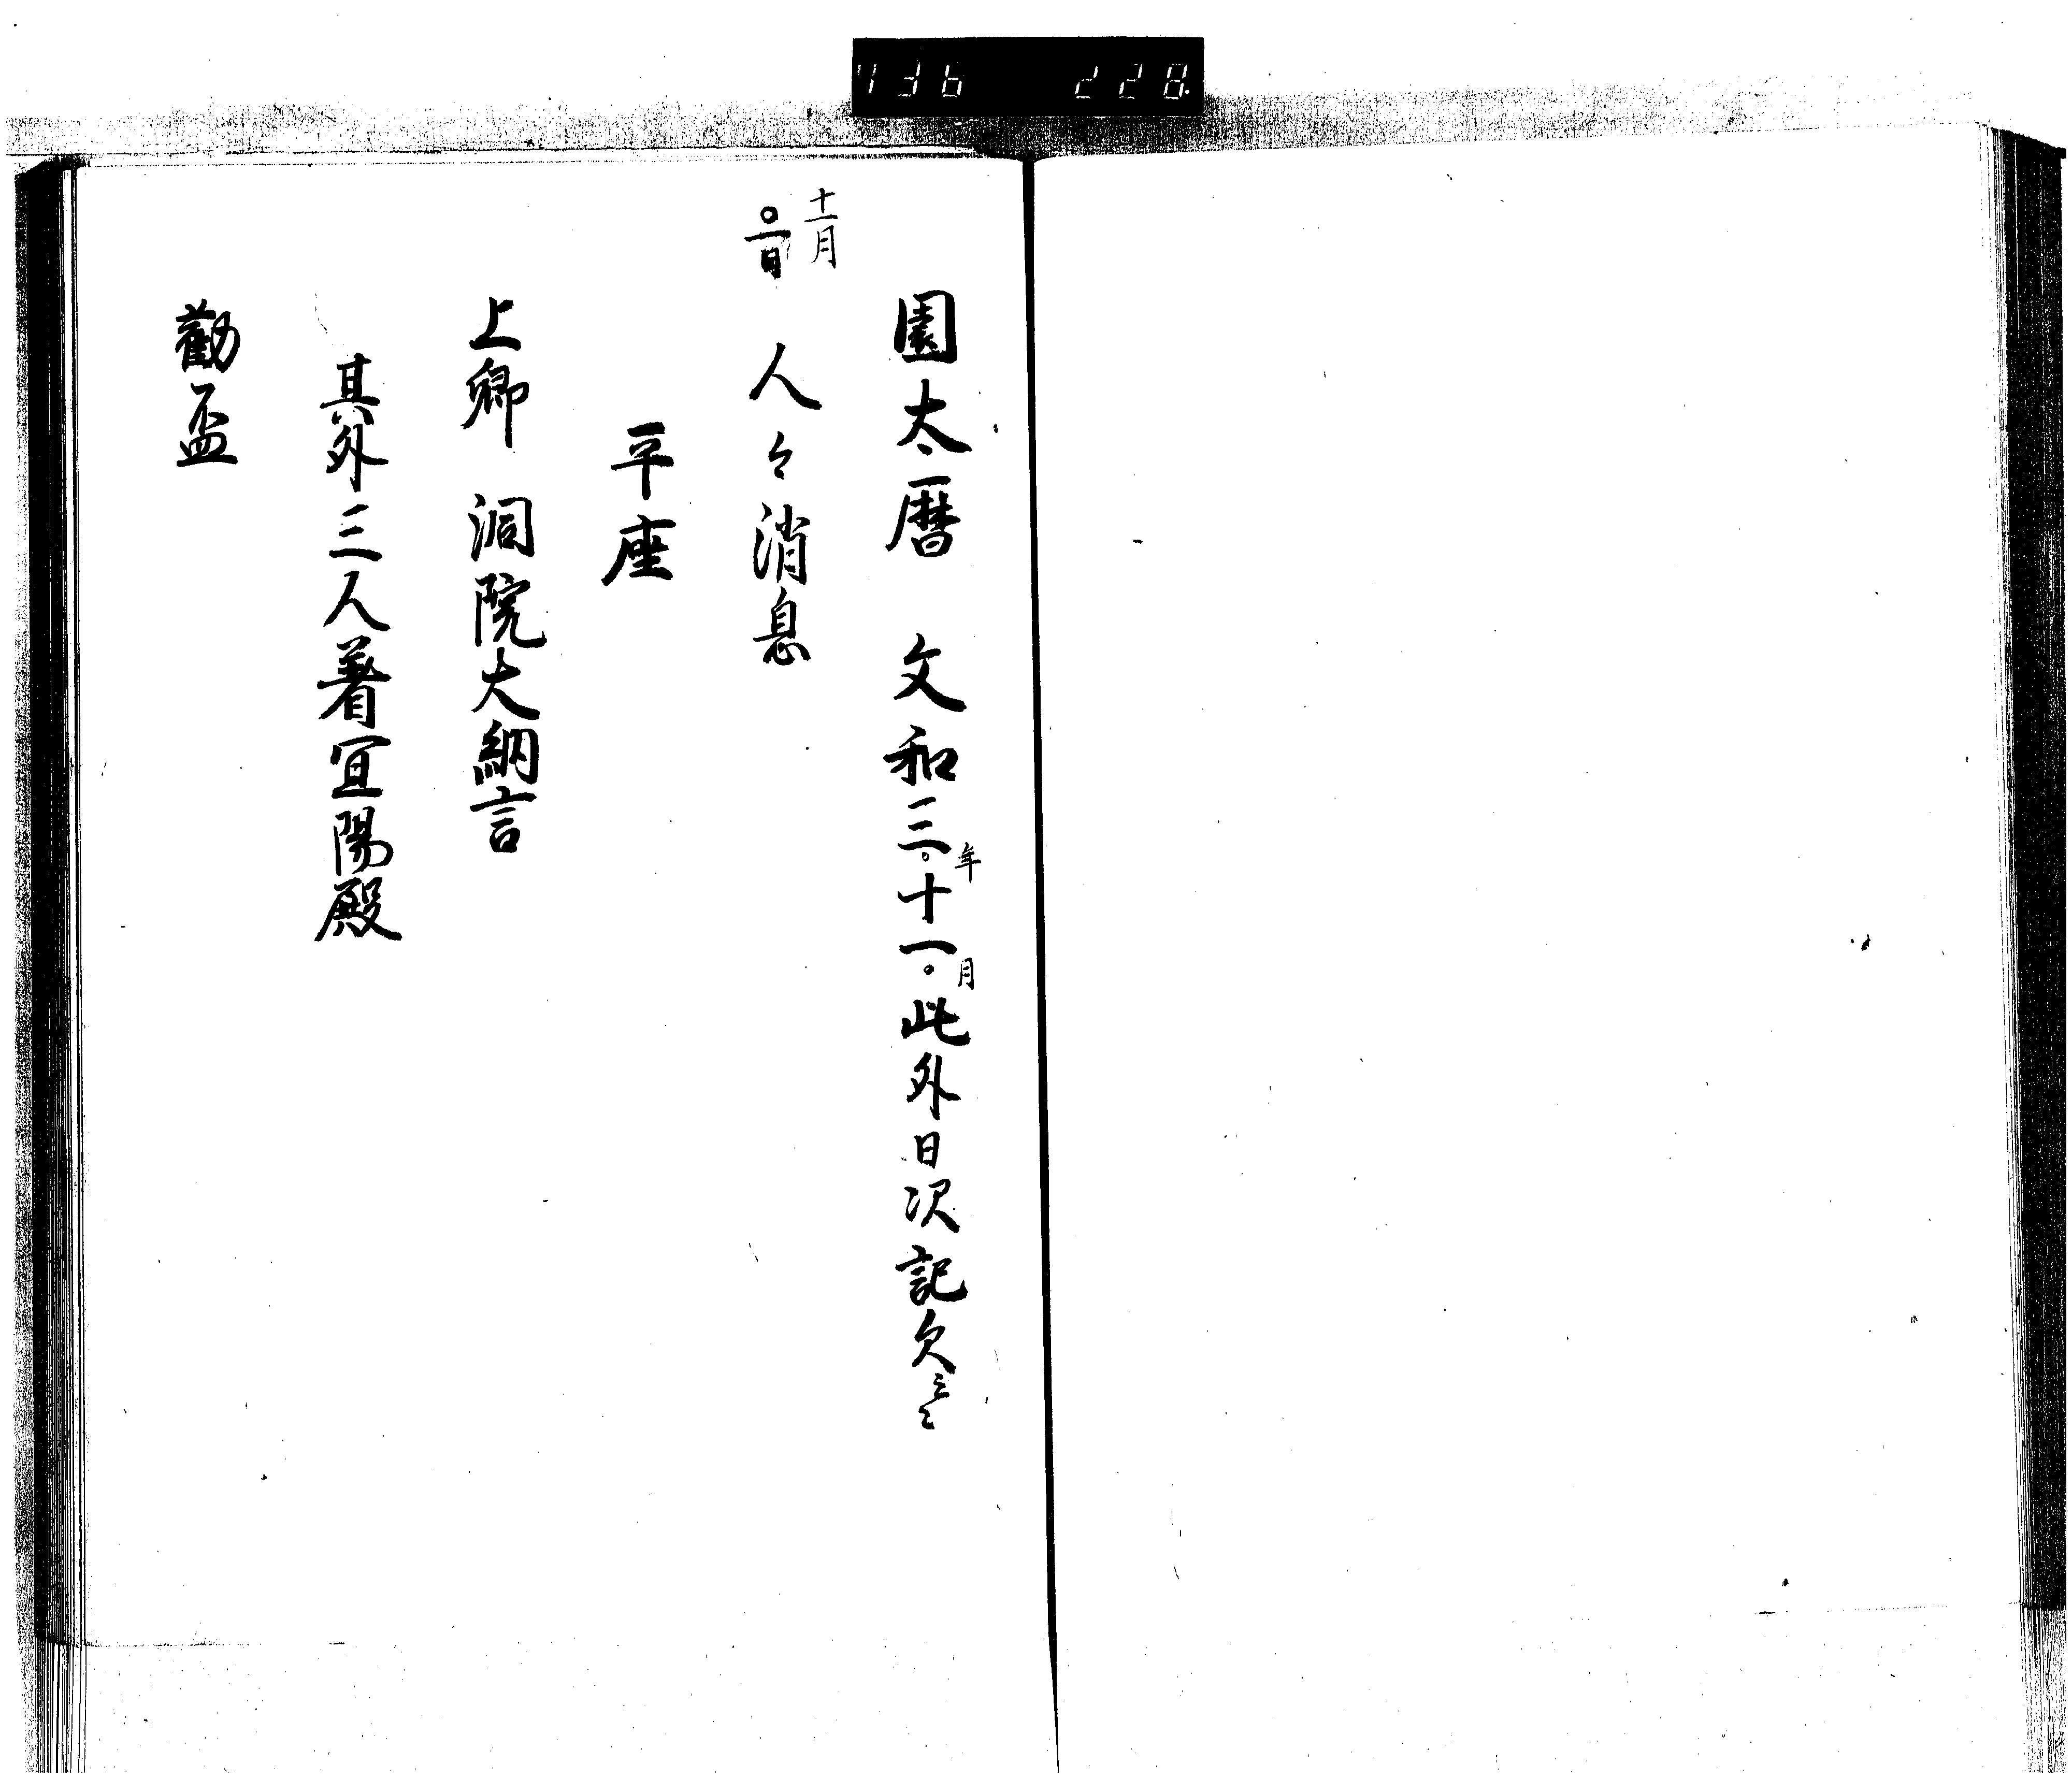 736 228
園太暦 文和三年十一月此外日次記欠云々
十一月
一日 人々消息
平座
上卿 洞院大納言
其外三人著宜陽殿
勸盃